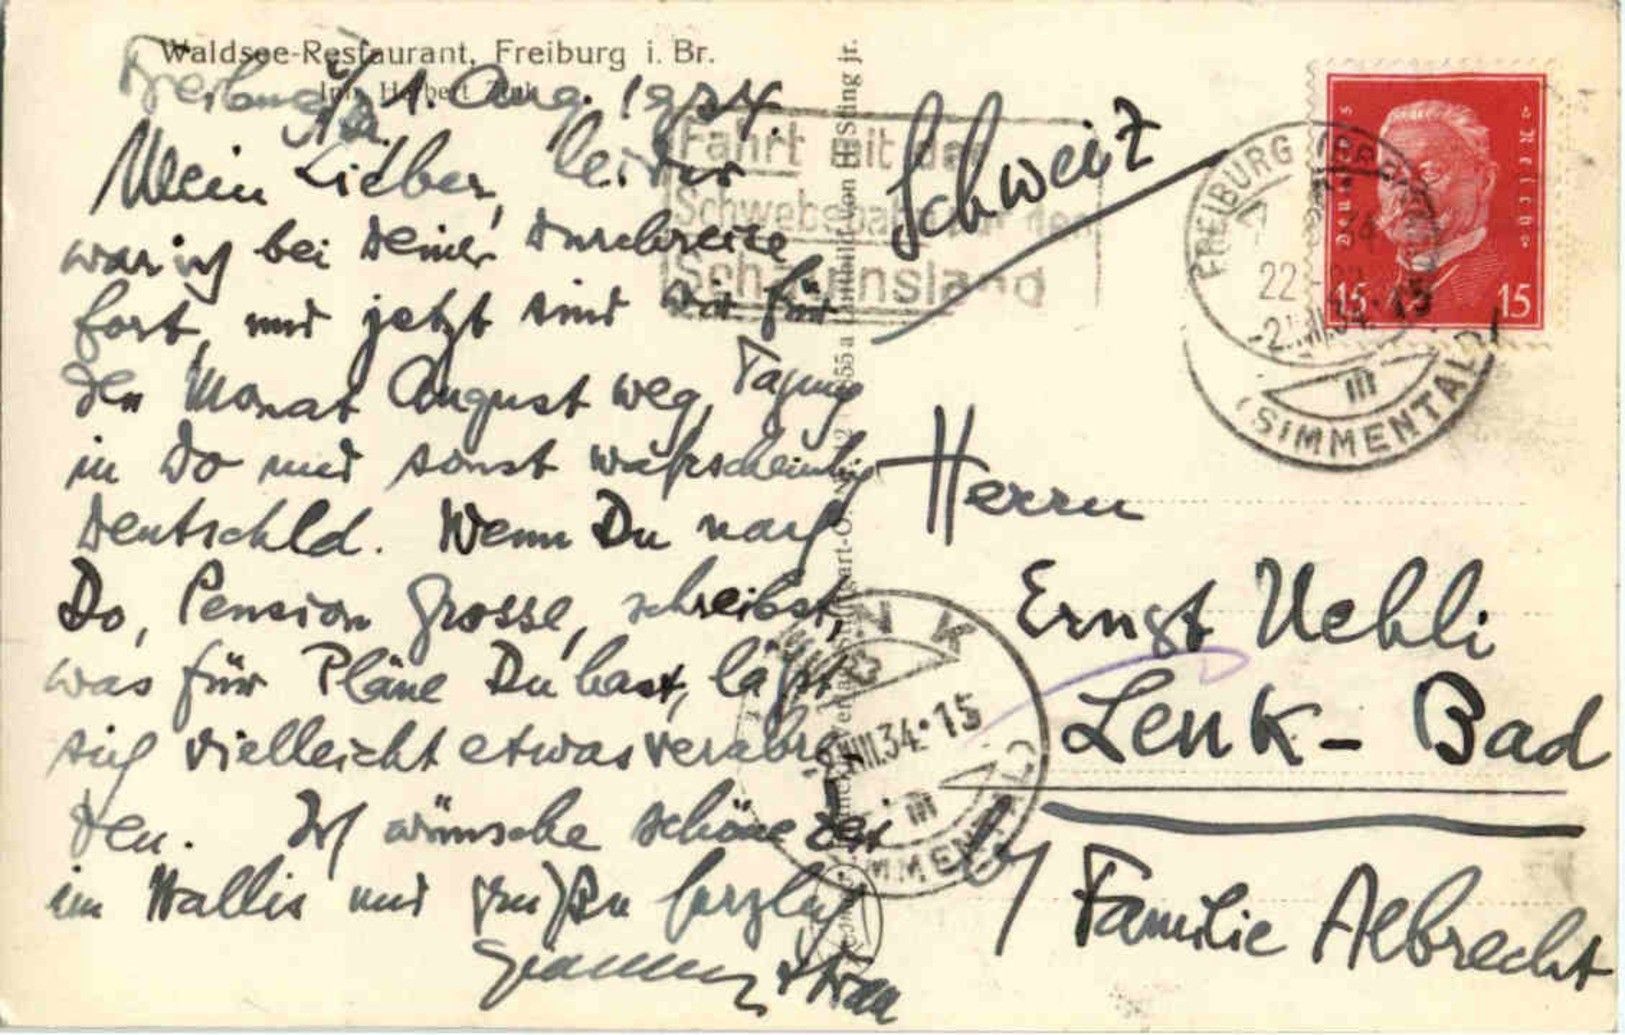 Waldsee-Restaurant, Freiburg i. Br.
Inh. Herbert Zink
Freiburg 1. Aug. 1934
Mein Lieber, leider
war ich bei Deiner Durchreise
fort, und jetzt sind wir für
den Monat August weg, Tagung
in Do und sonst wahrscheinlich
Deutschld. Wenn Du nach
Do, Pension Grosse, schreibst,
was für Pläne Du hast, läßt
sich vielleicht etwas verabre
den. Ich wünsche schöne Zeit
im Wallis und grüßen herzlich
+ Frau
Fahrt mit der
Schwebebahn auf den
Schauinsland
Schweiz
Deutsches Reich
15 15
FREIBURG (BREISGAU)
34
22
LENK
(SIMMENTAL)
-2.VIII.34.-15
III
Herrn
Ernst Uehli
Lenk - Bad
b/ Familie Albrecht
LENK
-2.VIII.34.-15
III
(SIMMENTAL)
von H. Sting jr.